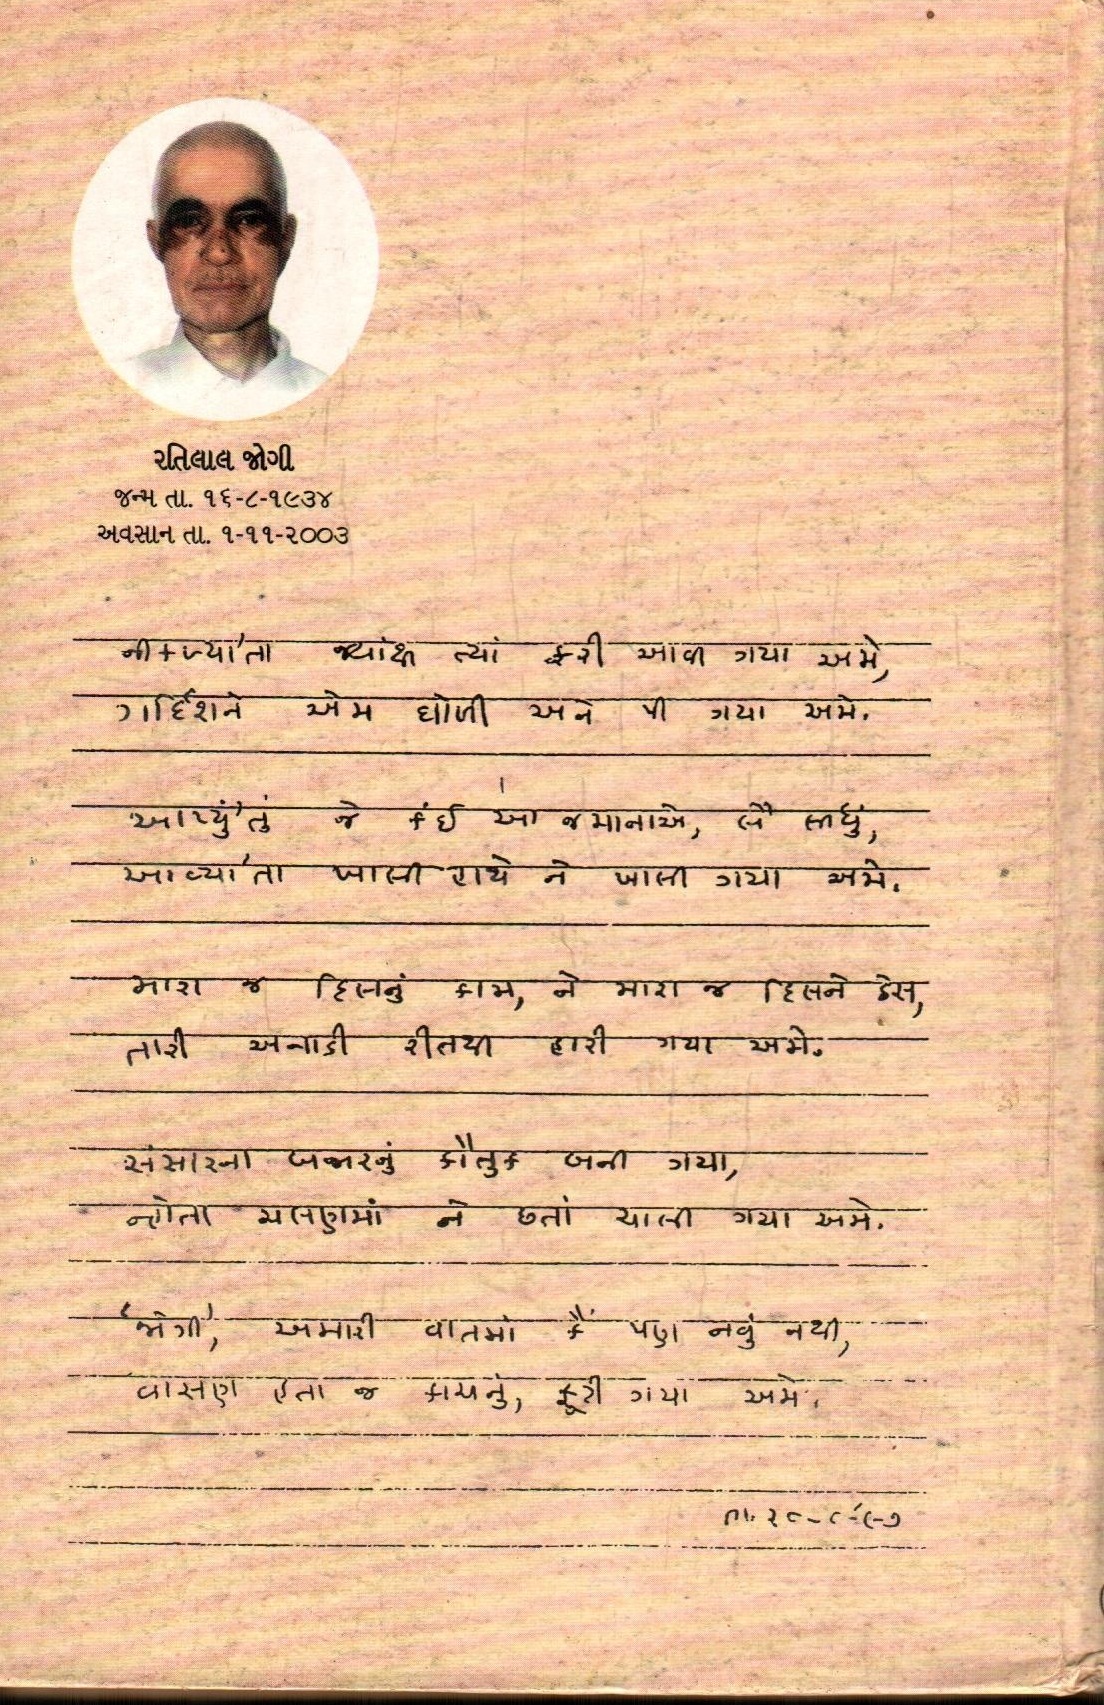 રતિલાલ જોગી
જન્મ તા. ૧૬-૮-૧૯૩૪
અવસાન તા. ૧-૧૧-૨૦૦૩
નીકળ્યા'તા જ્યાંથી ત્યાં ફરી આવી ગયા અમે,
ગર્દિશને એમ ઘોળી અને પી ગયા અમે.
આપ્યું'તું જે કંઈ આ જમાનાએ, લૈ લીધું,
આવ્યા'તા ખાલી હાથે ને ખાલી ગયા અમે.
મારા જ દિલનું કામ, ને મારા જ દિલને ઠેસ,
તારી અનાડી રીતથી હારી ગયા અમે.
સંસારના બજારનું કૌતુક બની ગયા,
ન્હોતા ચલણમાં ને છતાં ચાલી ગયા અમે.
'જોગી', અમારી વાતમાં કૈં પણ નવું નથી,
વાસણ હતા જ કાચનું, ફૂટી ગયા અમે.